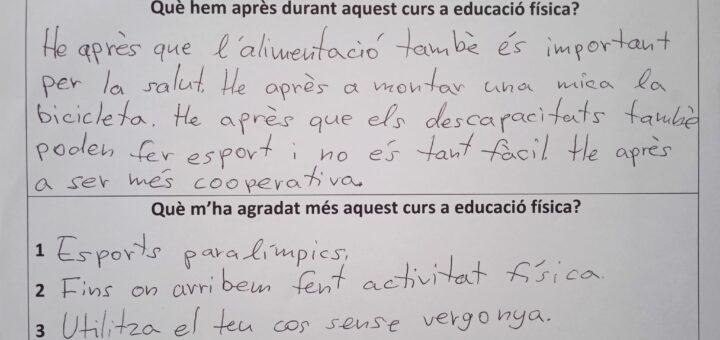 Què hem après durant aquest curs a educació física?
He après que l'alimentació també és important
per la salut. He après a montar una mica la
bicicleta. He après que els descapacitats també
poden fer esport i no és tant fàcil He après
a ser més cooperativa.
Què m'ha agradat més aquest curs a educació física?
1 Esports paralímpics.
2 Fins on arribem fent activitat física.
3 Utilitza el teu cos sense vergonya.